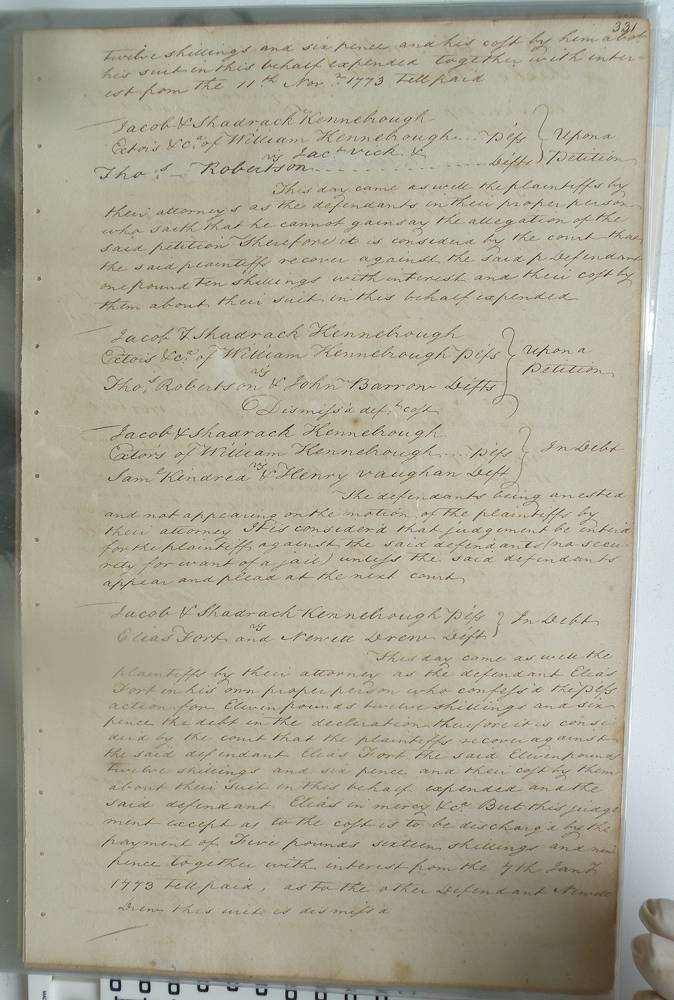 331
twelve shillings and six pence and his cost by him about
his suit in this behalf expended together with inter-
est from the 11th Novr 1773 till paid
Jacob & Shadrach Kennebrough
Exctors &ca of William Kennebrough ... Plfs } Upon a
vs Jacb Vick & Petition
Thos Robertson ............ Defts
This day came as well the plaintiffs by
their attorney as the defendants in their proper person
who saith that he cannot gainsay the allegation of the
said petition Therefore it is considerd by the court that
the said plaintiffs recover against the said Defendant
one pound ten shillings with interest and their cost by
them about their suit in this behalf expended
Jacob & Shadrach Kennebrough
Exctors &ca of William Kennebrough Plfs } Upon a
vs Petition
Thos Robertson & John Barrow Defts
Dismiss'd defts cost
Jacob & Shadrach Kennebrough
Exctors of William Kennebrough .... Plfs } In Debt
vs
Saml Kindred & Henry Vaughan Deft
The defendants being arrested
and not appearing on the motion of the plaintiffs by
their attorney It is consider'd that judgement be enterd
for the plaintiff against the said defendants (no secu-
rity for want of a jail) unless the said defendants
appear and plead at the next court
Jacob & Shadrach Kennebrough Plfs } In Debt
vs
Elias Fort and Newitt Drew Deft
This day came as well the
plaintiffs by their attorney as the defendant Elias
Fort in his own proper person who confess'd the Plfs
action for Eleven pounds twelve shillings and six
pence the debt in the decleration therefore it is consi-
derd by the court that the plaintiffs recover against
the said defendant Elias Fort the said Eleven pounds
twelve shillings and six pence and their cost by them
about their suit in this behalf expended and the
said defendant Elias in mercy &ca But this judge
ment except as to the cost is to be discharg'd by the
payment of Five pounds sixteen shillings and nine
pence together with interest from the 7th Jany
1773 till paid, as to the other Defendant Newitt
Drew this writ is dismiss'd